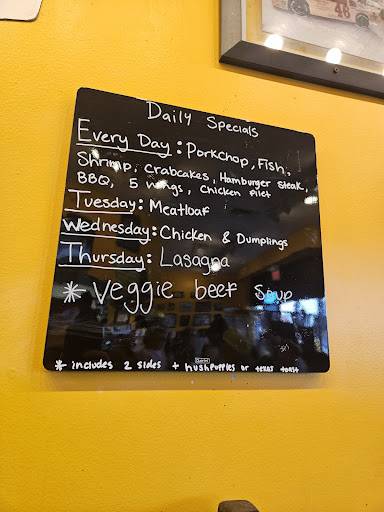 48
Daily Specials
Every Day: Porkchop, Fish,
Shrimp, Crabcakes, Hamburger Steak,
BBQ, 5 wings, Chicken filet
Tuesday: Meatloaf
Wednesday: Chicken & Dumplings
Thursday: Lasagna
* Veggie beef Soup
* includes 2 sides + hushpuppies or texas toast